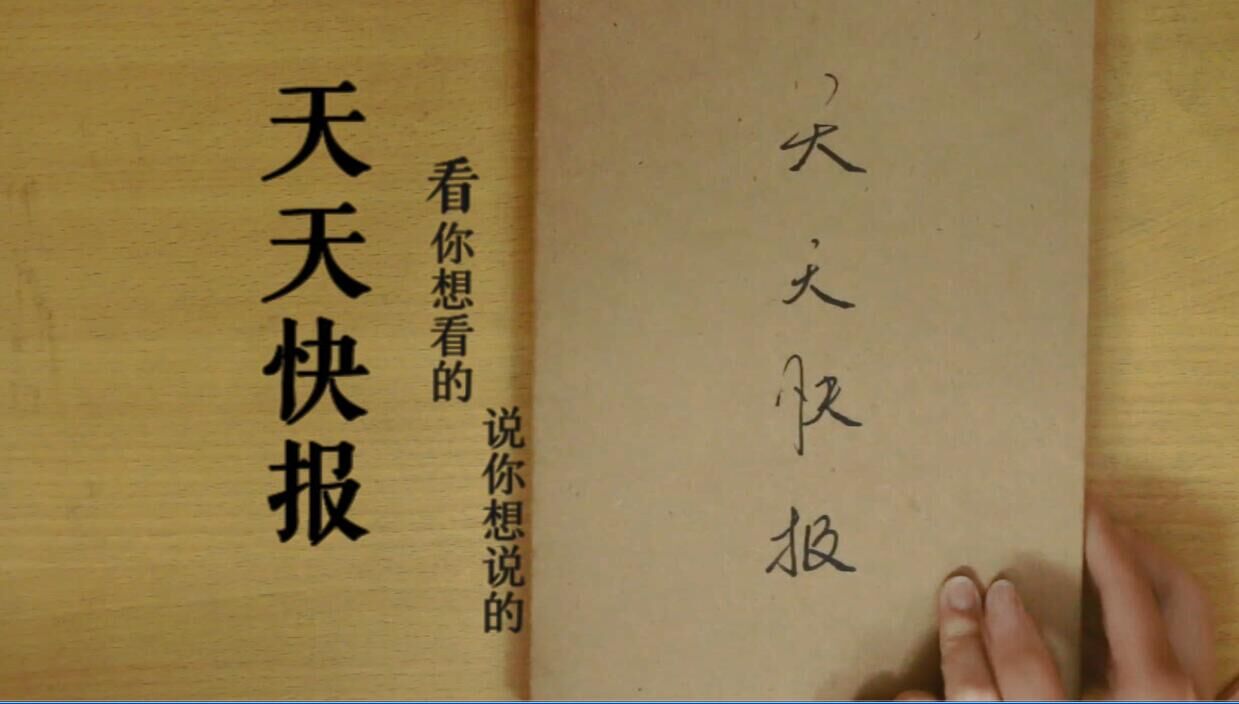 天天快报
看你想看的
说你想说的
天天快报